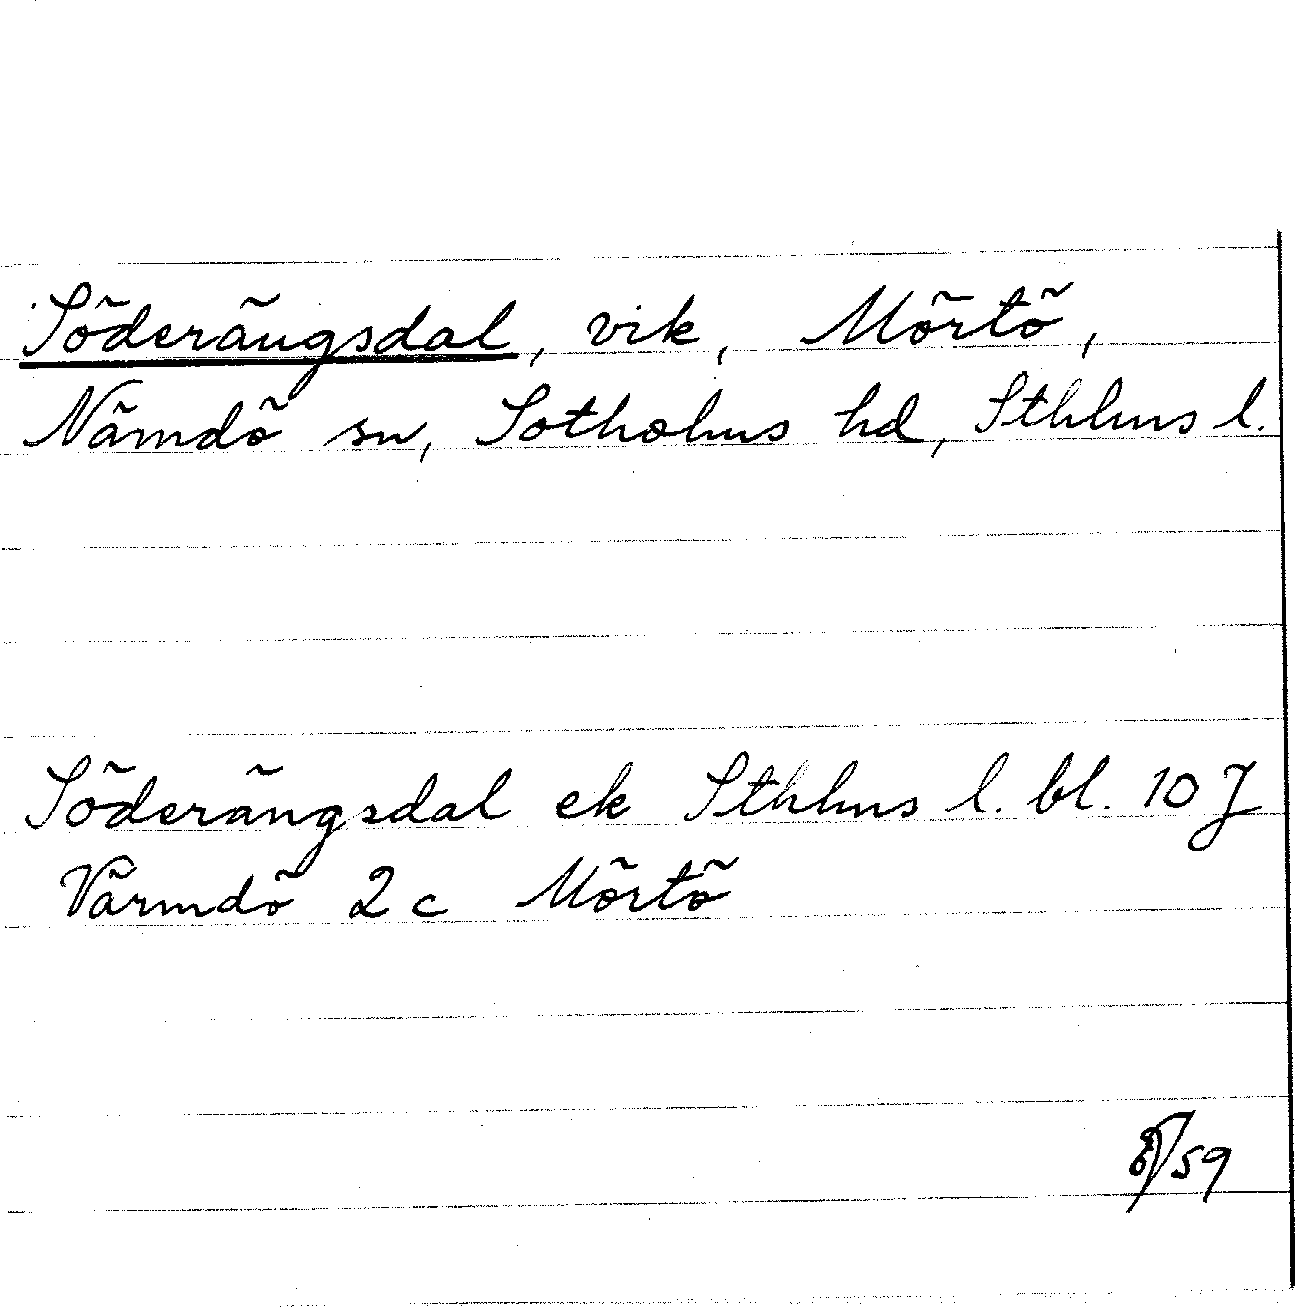 Söderängsdal, vik, Mörtö,
Nämdö sn, Sotholms hd, Sthlms l.
Söderängsdal ek Sthlms l. bl. 10 J
Värmdö 2 c Mörtö
/59